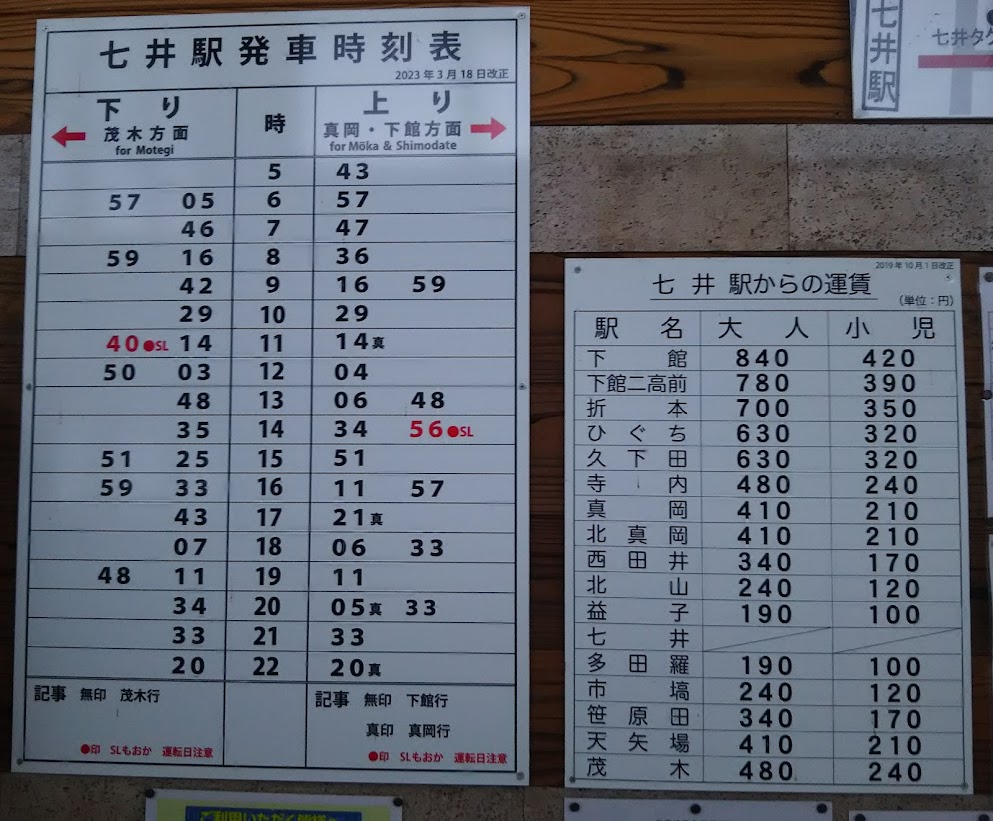 七井駅発車時刻表
2023年3月18日改正
下り 時 上り
茂木方面 真岡・下館方面
for Motegi for Mōka & Shimodate
5 43
57 05 6 57
46 7 47
59 16 8 36
42 9 16 59
29 10 29
40●SL 14 11 14真
50 03 12 04
48 13 06 48
35 14 34 56●SL
51 25 15 51
59 33 16 11 57
43 17 21真
07 18 06 33
48 11 19 11
34 20 05真 33
33 21 33
20 22 20真
記事 無印 茂木行
●印 SLもおか 運転日注意
記事 無印 下館行
真印 真岡行
●印 SLもおか 運転日注意
七井駅
七井タク
2019年10月1日改正
七井駅からの運賃
(単位:円)
駅名 大人 小児
下館 840 420
下館二高前 780 390
折本 700 350
ひぐち 630 320
久下田 630 320
寺内 480 240
真岡 410 210
北真岡 410 210
西田井 340 170
北山 240 120
益子 190 100
七井
多田羅 190 100
市塙 240 120
笹原田 340 170
天矢場 410 210
茂木 480 240